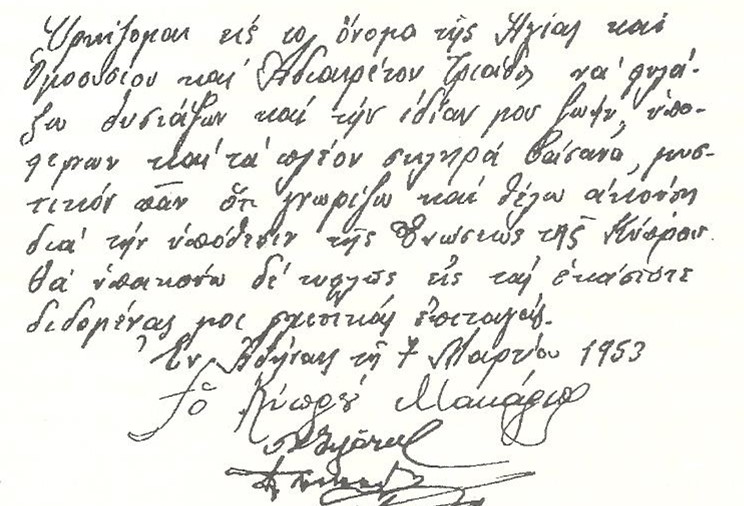 Ὁρκίζομαι εἰς τό ὄνομα τῆς Ἁγίας καί
Ὁμοουσίου καί Ἀδιαιρέτου Τριάδος νά φυλά-
ξω θυσιάζων καί τήν ἰδίαν μου ζωήν, ὑπο-
φέρων καί τά πλέον σκληρά βάσανα, μυσ-
τικόν πᾶν ὅτι γνωρίζω καί θέλω ἀκούση
διά τήν ὑπόθεσιν τῆς Ἑνώσεως τῆς Κύπρου.
θά ὑπακούω δέ τυφλῶς εἰς τάς ἑκάστοτε
διδομένας μοι σχετικάς ἐπιταγάς.
Ἐν Ἀθήναις τῇ 7 Μαρτίου 1953
Ὁ Κύπρου Μακάριος